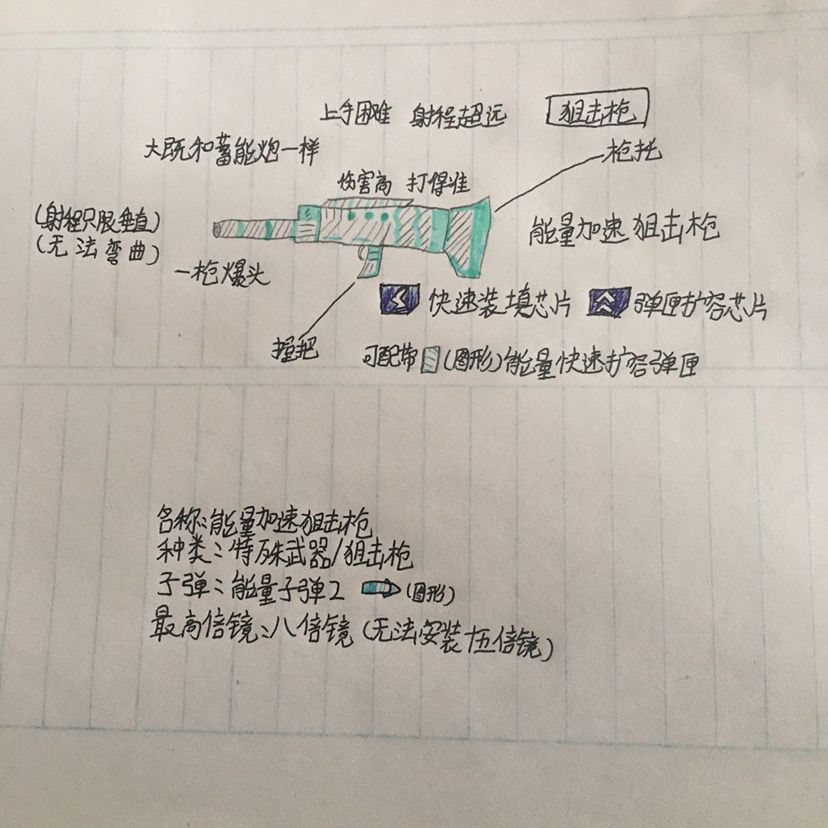 上手困难 射程超远 狙击枪
大既和蓄能炮一样
枪托
伤害高 打得准
(射程只限垂直)
(无法弯曲)
能量加速狙击枪
一枪爆头
快速装填芯片 弹匣扩容芯片
握把
可配带(图形)能量快速扩容弹匣
名称:能量加速狙击枪
种类:特殊武器/狙击枪
子弹:能量子弹2 (图形)
最高倍镜:八倍镜(无法安装十五倍镜)